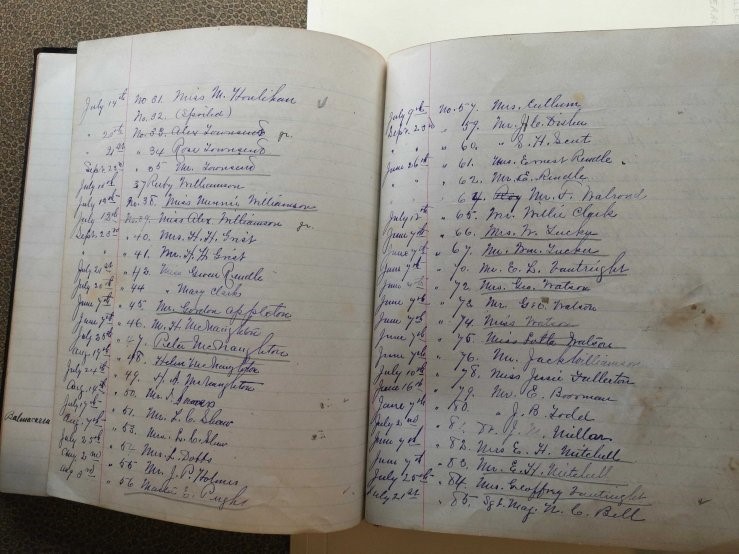 July 14th No 31. Miss M. Houlihan
No. 32. (Spoiled)
" 20th No. 33. Alex Townsend jr.
" 21st " 34 Rose Townsend
Sept. 23rd " 35 Mr. Townsend
July 10th 37 Ruby Williamson
July 19th No. 38. Miss Minnie Williamson
July 13th No. 39. Miss Alex. Williamson jr.
Sept. 23rd " 40. Mrs. H. H. Grist
" 41. Mr. H. H. Grist
July 21st " 43. Miss Gwen Rendle
July 20th " 44 " Mary Clarks
June 7th " 45. Mr. Gordon Appleton
June 7th " 46. M. H. McNaughton
July 25th " 47. Peter McNaughton
Aug. 17th " 48. Helen McNaughton
July 24th " 49. McNaughton
Aug. 14th " 50. Mr.
July 17th " 51. Mr. L. C. Shaw
Balmacarra Aug. 7th " 53. Mrs. L. C. Shaw
July 25th " 54. Mrs. L. Dobbs
Aug. 2nd " 55 Mr. J. P. Holmes
Aug. 3rd " 56. Master E. Pugh
July 9th No. 57. Mrs. Cullum
Sept. 23rd " 59. Mr. H. C. Disher
" 60. " H. Gent
June 26th " 61. Mrs. Ernest Rendle
" " 62. Mr. E. Rendle
" " 64. Mr. F. Walrond
July 12th " 65. Mr. Willie Clark
June 7th " 66. Mrs. W. Tucker
June 7th " 67. Mr. Wm. Tucker
June 7th " 70. Mr. E. L. Vantreight
June " 72. Mrs. Geo. Watson
June 7th " 73. Mr. Geo. Watson
June 7th " 74. Miss Watson
June 7th " 75. Miss Lotta Watson
June 7th " 76. Mr. Jack Williamson
July 10th " 78. Miss Jessie Fullerton
June 16th " 79. Mr. E. Boorman
June 7th " 80. " J. B. Todd
July 2nd Millar
June 7th " 82. Miss E. H. Mitchell
June 7th " 83. Mr. E. H. Mitchell
July 25th " 84. Mrs. Geoffrey Vantreight
July 21st " 85. Sgt. Maj. N. C. Bell